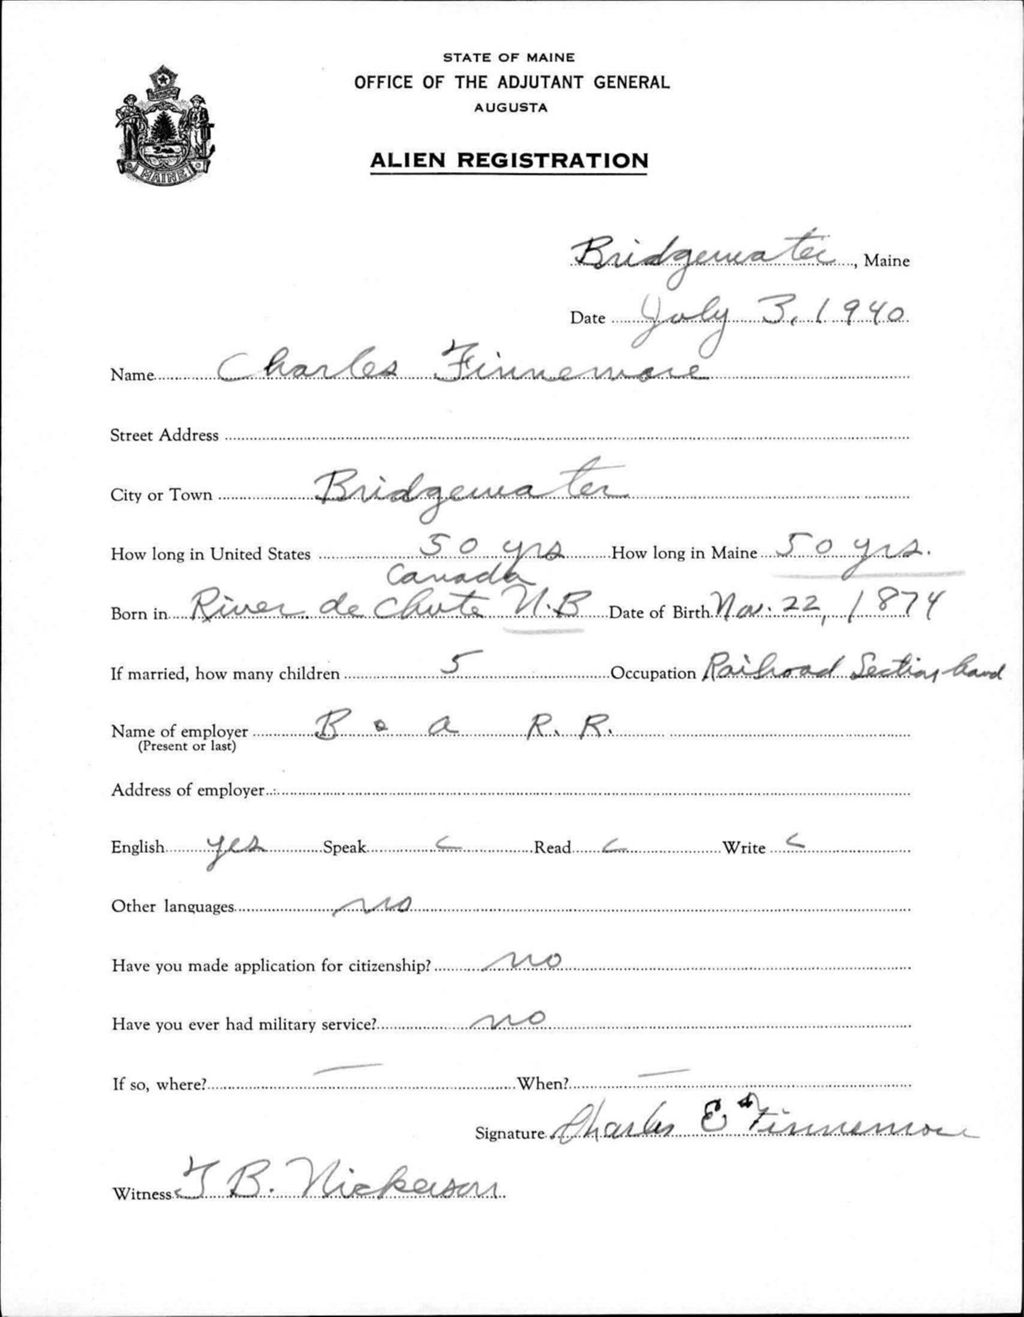 STATE OF MAINE
OFFICE OF THE ADJUTANT GENERAL
AUGUSTA
MAINE
ALIEN REGISTRATION
Bridgewater, Maine
Date July 3, 1940
Name Charles Finnemore
Street Address
City or Town Bridgewater
How long in United States 50 yrs How long in Maine 50 yrs.
Canada
Born in River de Chute N.B Date of Birth Nov. 22, 1874
If married, how many children 5 Occupation Railroad Section hand
Name of employer B & A R. R.
(Present or last)
Address of employer
English yes Speak Read Write
Other languages no
Have you made application for citizenship? no
Have you ever had military service? no
If so, where? — When? —
Signature Charles E Finnemore
Witness T B. Nickerson